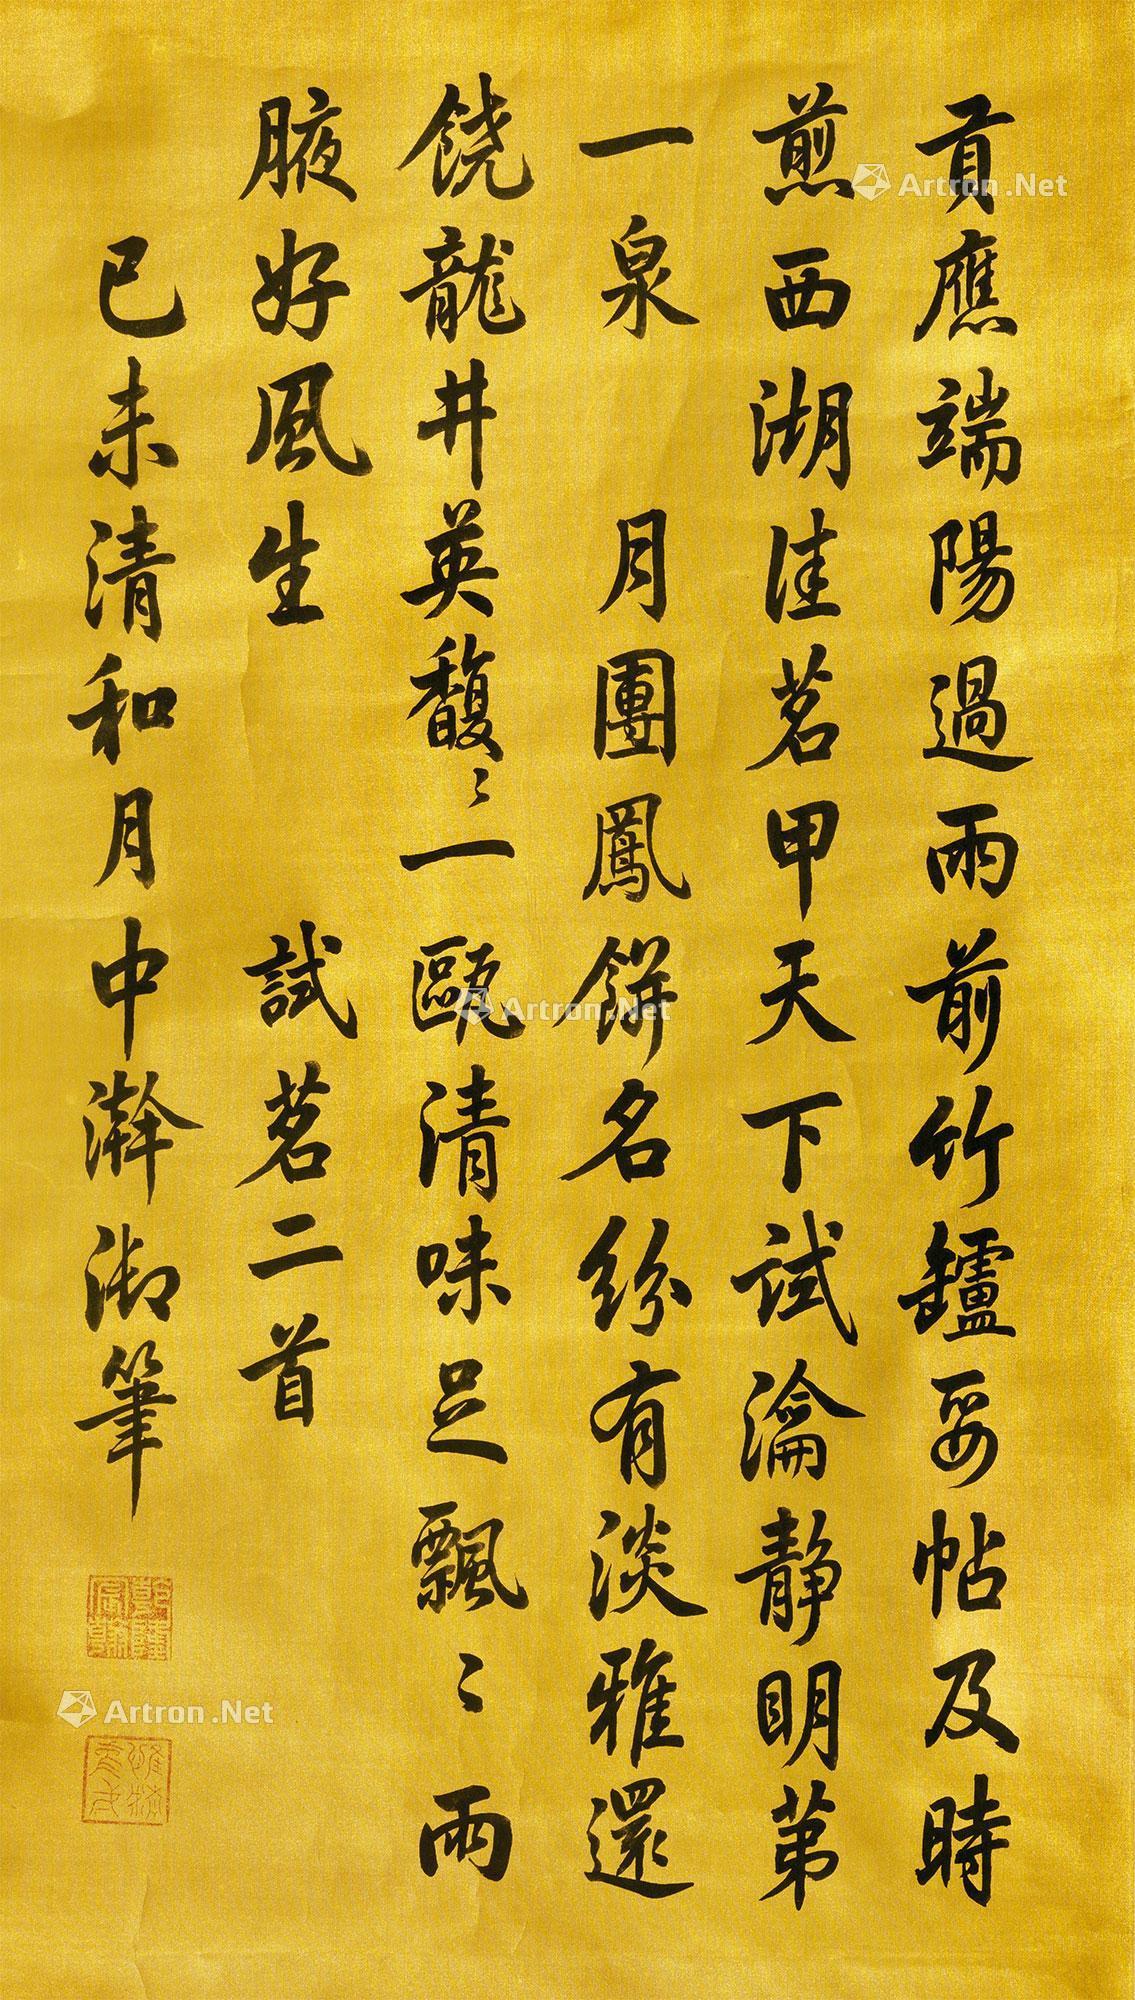 貢應端陽過雨前竹鑪妥帖及時
煎西湖佳茗甲天下試瀹静明苐
一泉　月團鳳餅名紛有淡雅還
饒龍井英馥〻一甌清味足飄〻兩
腋好風生　試茗二首
己未清和月中澣御筆
乾隆宸翰
惟精惟一
Artron.Net
Artron.Net
Artron.Net